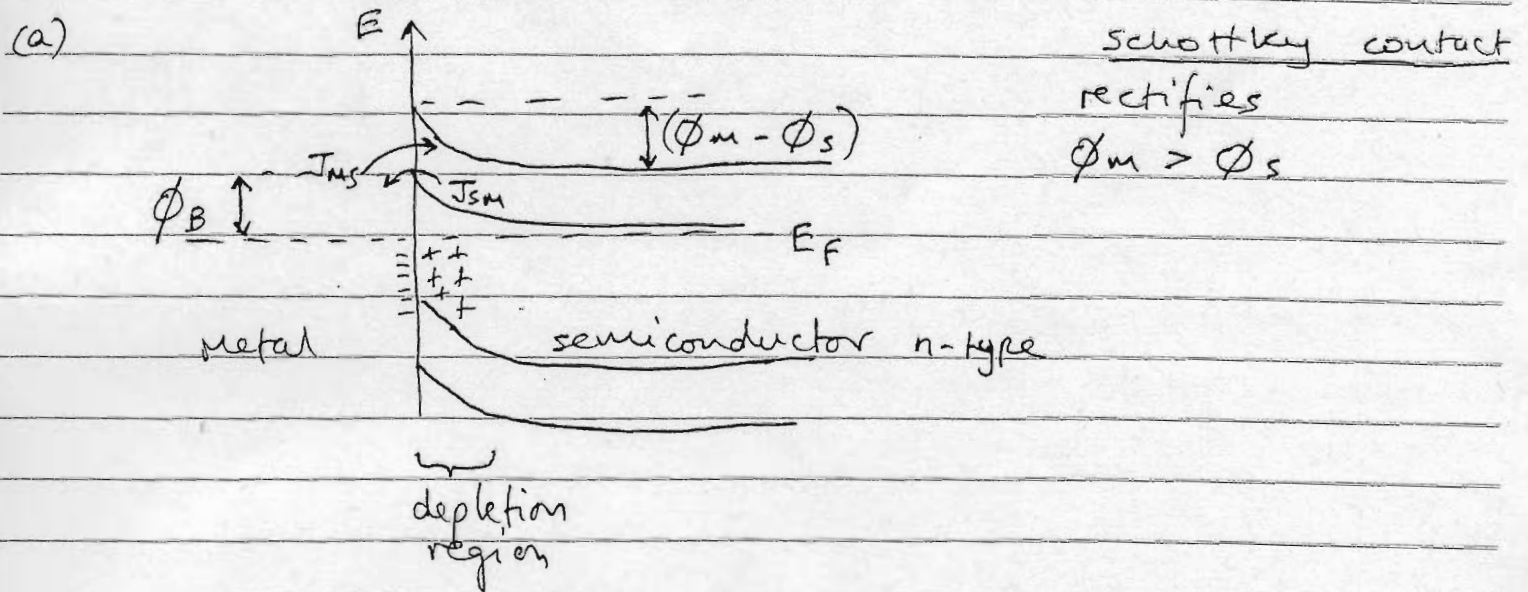 (a)
E
schottky contact
rectifies
(ϕm - ϕs)
ϕm > ϕs
JMS
JSM
ϕB
EF
+ +
+ +
+ +
metal
semiconductor n-type
depletion
region